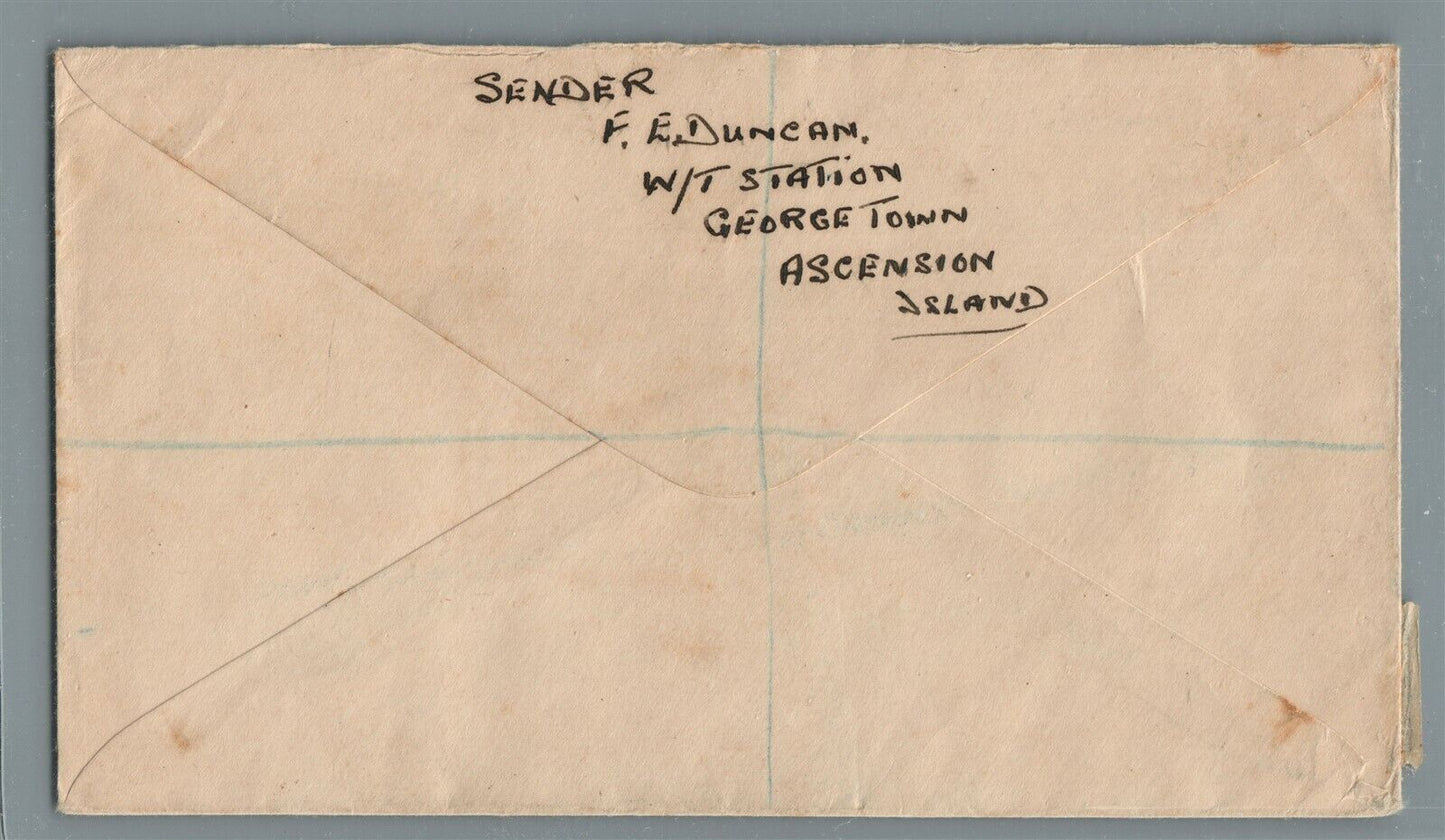 SENDER
F. E. DUNCAN.
W/T STATION
GEORGE TOWN
ASCENSION
ISLAND